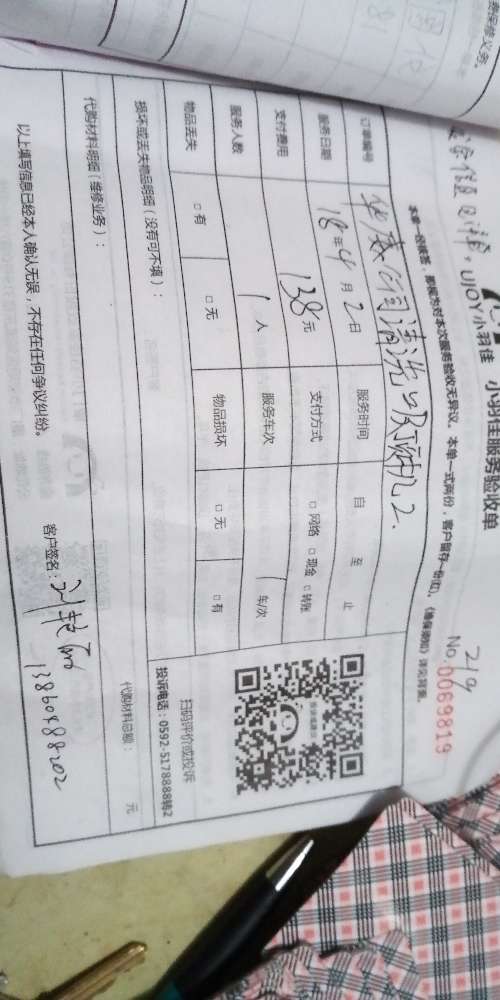 UJOY小羽佳 小羽佳服务验收单
219
No.0069819
本单一经核签,即视为对本次服务验收无异议。本单一式两份,客户留存一份
详见背面。
订单编号
清洗吸油机2.
服务日期 18年4月2日 服务时间 自 至 止
支付费用 138元 支付方式 □网络 □现金 □转账
服务人数 1人 服务车次 1车/次
物品丢失 □有 □无 物品损坏 □无 □有
损坏或丢失物品明细(没有可不填):
代购材料明细(维修业务):
代购材料总额: 元
扫码评价或投诉
投诉电话:0592-5178888转2
以上填写信息已经本人确认无误,不存在任何争议纠纷。
客户签名:
13860488202